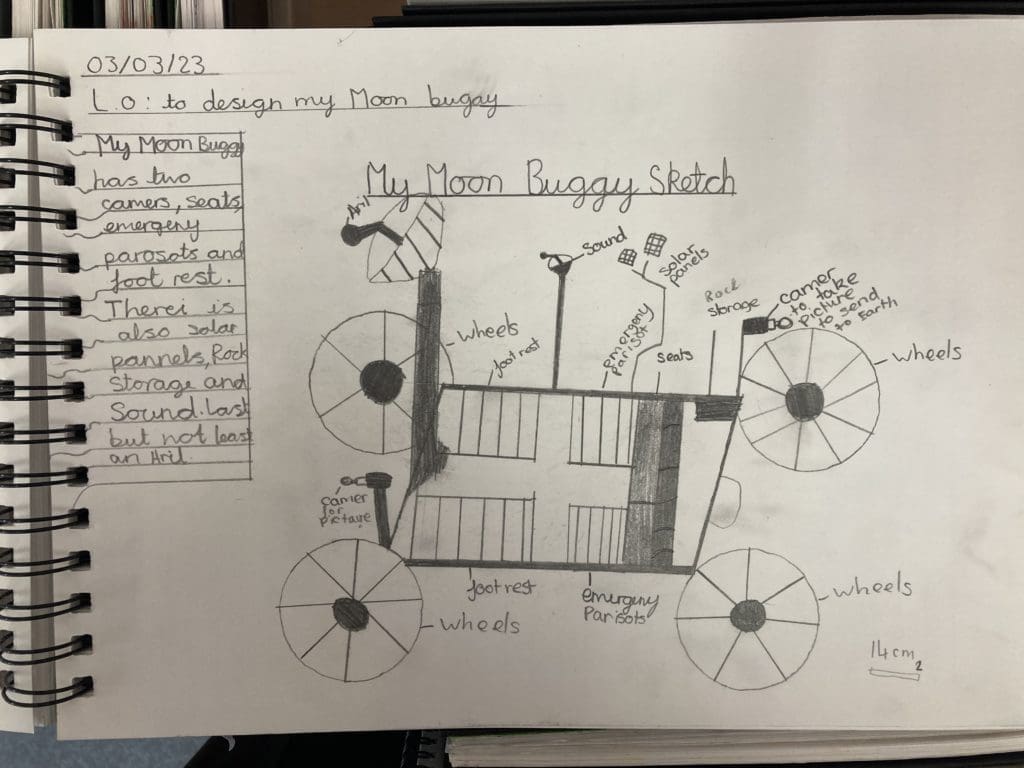 03/03/23
L.O: to design my Moon bugay
My Moon Bugg
has two
camers, seats,
emergeny
parosots and
foot rest.
Therei is
also solar
pannels, Rock
Storage and
Sound. Last
but not least
an Aril.
My Moon Buggy Sketch
Aril
Sound
Solar
panels
Rock
Storage
camer
to take
Picture
to send
to Earth
wheels
foot rest
emergeny
Parisot
Seats
wheels
camer
for
Picture
foot rest
emergeny
Parisots
wheels
wheels
14cm2